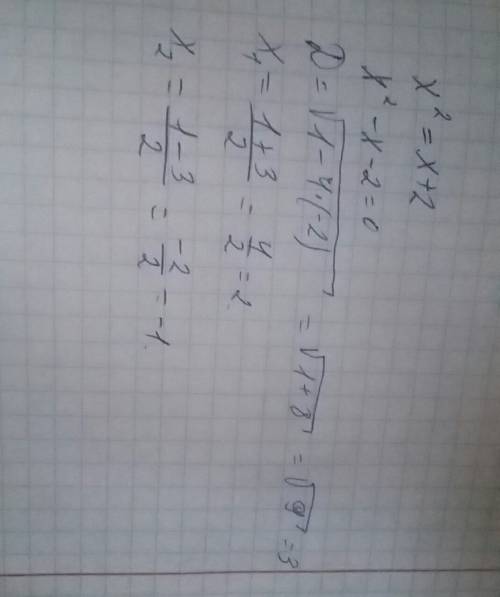 x² = x+2
x² - x - 2 = 0
D = √1 - 4·(-2) = √1+8 = √9 = 3
x₁ = 1+3/2 = 4/2 = 2
x₂ = 1-3/2 = -2/2 = -1.